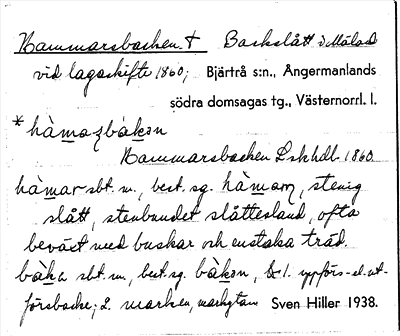 Hammarsbacken † Backslått i Målad
vid lagaskifte 1860; Bjärtrå s:n., Ångermanlands
södra domsagas tg., Västernorrl. l.
* hàmaʒbàkan
Hammarsbacken Lskhdl. 1860
hàmar sbt. m., best. sg. hàmarn, stenig
slått, stenbundet slåttesland, ofta
beväxt med buskar och enstaka träd.
bàka sbt. m., best. sg. bàkan, 1. uppförs- el. ut-
försbacke; 2. marken, markytan Sven Hiller 1938.